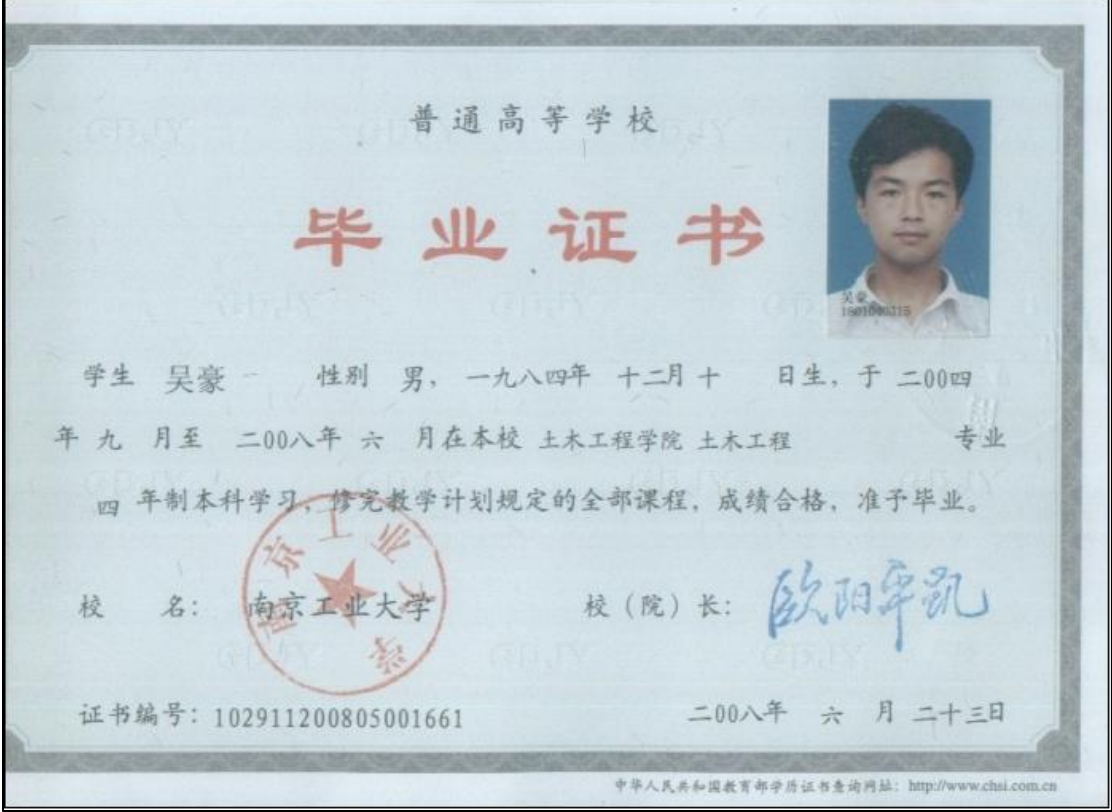 普通高等学校
毕业证书
吴豪
1801040315
学生 吴豪 性别 男，一九八四年 十二月 十 日生，于 二00四
年 九 月至 二00八年 六 月在本校 土木工程学院 土木工程 专业
四 年制本科学习，修完教学计划规定的全部课程，成绩合格，准予毕业。
南京工业大学
校 名： 南京工业大学 校（院）长： 欧阳平凯
证书编号：102911200805001661 二00八年 六 月 二十三日
中华人民共和国教育部学历证书查询网址：http://www.chsi.com.cn